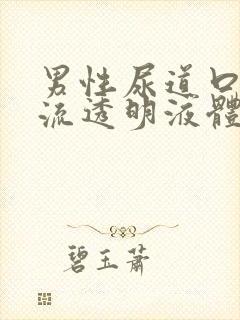 男性尿道口
流透明液體
碧玉蕭